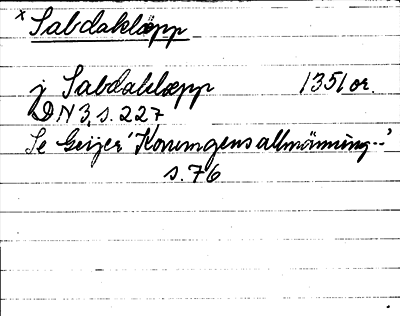 x Sabdaklæpp
j Sabdaklæpp 1351 or.
DN 3, s. 227
Se Geijer 'Konungens allmänning...'
s. 76